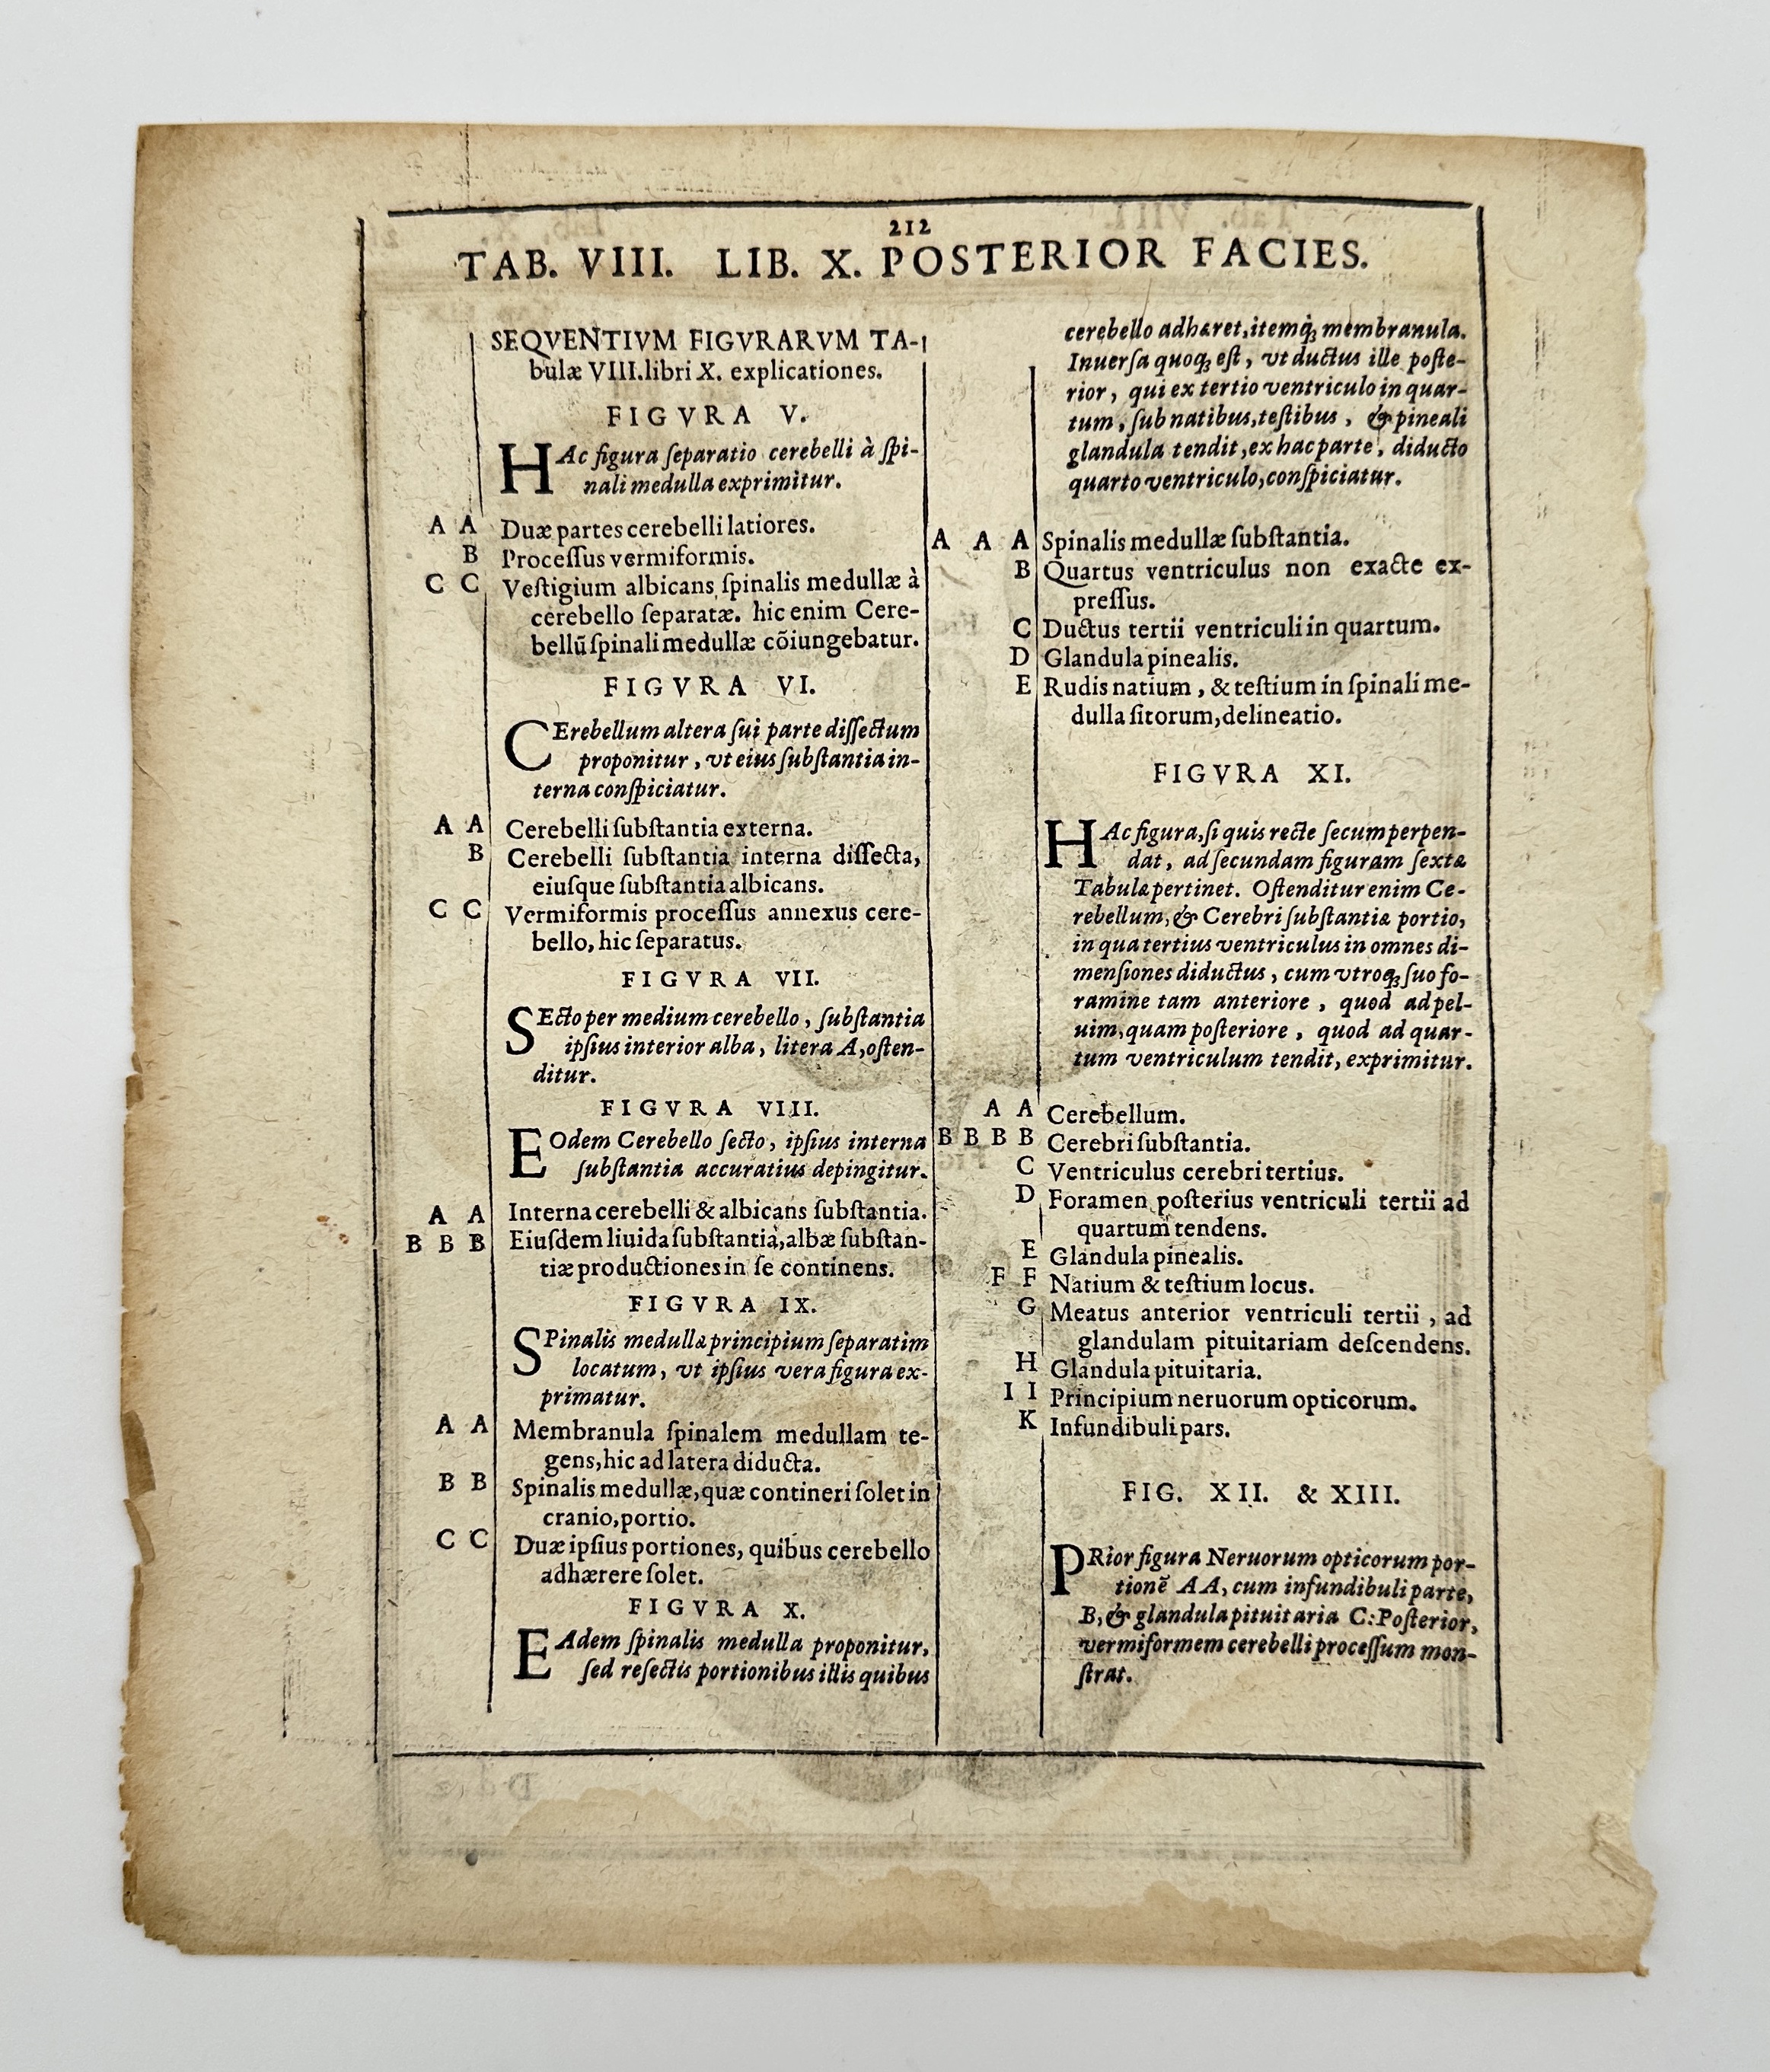 212
TAB. VIII. LIB. X. POSTERIOR FACIES.
SEQVENTIVM FIGVRARVM TA-
bulæ VIII.libri X. explicationes.
FIGVRA V.
HAc figura ſeparatio cerebelli à ſpi-
nali medulla exprimitur.
A A Duæ partes cerebelli latiores.
B Proceſſus vermiformis.
C C Veſtigium albicans ſpinalis medullæ à
cerebello ſeparatæ. hic enim Cere-
bellũ ſpinali medullæ cõiungebatur.
FIGVRA VI.
CErebellum altera ſui parte diſſectum
proponitur, vt eius ſubſtantia in-
terna conſpiciatur.
A A Cerebelli ſubſtantia externa.
B Cerebelli ſubſtantia interna diſſecta,
eiuſque ſubſtantia albicans.
C C Vermiformis proceſſus annexus cere-
bello, hic ſeparatus.
FIGVRA VII.
SEcto per medium cerebello, ſubſtantia
ipſius interior alba, litera A, oſten-
ditur.
FIGVRA VIII.
EOdem Cerebello ſecto, ipſius interna
ſubſtantia accuratius depingitur.
A A Interna cerebelli & albicans ſubſtantia.
B B B Eiuſdem liuida ſubſtantia, albæ ſubſtan-
tiæ productiones in ſe continens.
FIGVRA IX.
SPinalis medullæ principium ſeparatim
locatum, vt ipſius vera figura ex-
primatur.
A A Membranula ſpinalem medullam te-
gens, hic ad latera diducta.
B B Spinalis medullæ, quæ contineri ſolet in
cranio, portio.
C C Duæ ipſius portiones, quibus cerebello
adhærere ſolet.
FIGVRA X.
EAdem ſpinalis medulla proponitur,
ſed reſectis portionibus illis quibus
cerebello adhæret, itemq́ꝫ membranula.
Inuerſa quoqꝫ eſt, vt ductus ille poſte-
rior, qui ex tertio ventriculo in quar-
tum, ſub natibus, teſtibus, & pineali
glandula tendit, ex hac parte, diducto
quarto ventriculo, conſpiciatur.
A A A Spinalis medullæ ſubſtantia.
B Quartus ventriculus non exacte ex-
preſſus.
C Ductus tertii ventriculi in quartum.
D Glandula pinealis.
E Rudis natium, & teſtium in ſpinali me-
dulla ſitorum, delineatio.
FIGVRA XI.
HAc figura, ſi quis recte ſecum perpen-
dat, ad ſecundam figuram ſextæ
Tabulæ pertinet. Oſtenditur enim Ce-
rebellum, & Cerebri ſubſtantiæ portio,
in qua tertius ventriculus in omnes di-
menſiones diductus, cum vtroqꝫ ſuo fo-
ramine tam anteriore, quod ad pel-
uim, quam poſteriore, quod ad quar-
tum ventriculum tendit, exprimitur.
A A Cerebellum.
B B B B Cerebri ſubſtantia.
C Ventriculus cerebri tertius.
D Foramen poſterius ventriculi tertii ad
quartum tendens.
E Glandula pinealis.
F F Natium & teſtium locus.
G Meatus anterior ventriculi tertii, ad
glandulam pituitariam deſcendens.
H Glandula pituitaria.
I I Principium neruorum opticorum.
K Infundibuli pars.
FIG. XII. & XIII.
PRior figura Neruorum opticorum por-
tionẽ AA, cum infundibuli parte,
B, & glandula pituitaria C: Poſterior,
vermiformem cerebelli proceſſum mon-
ſtrat.